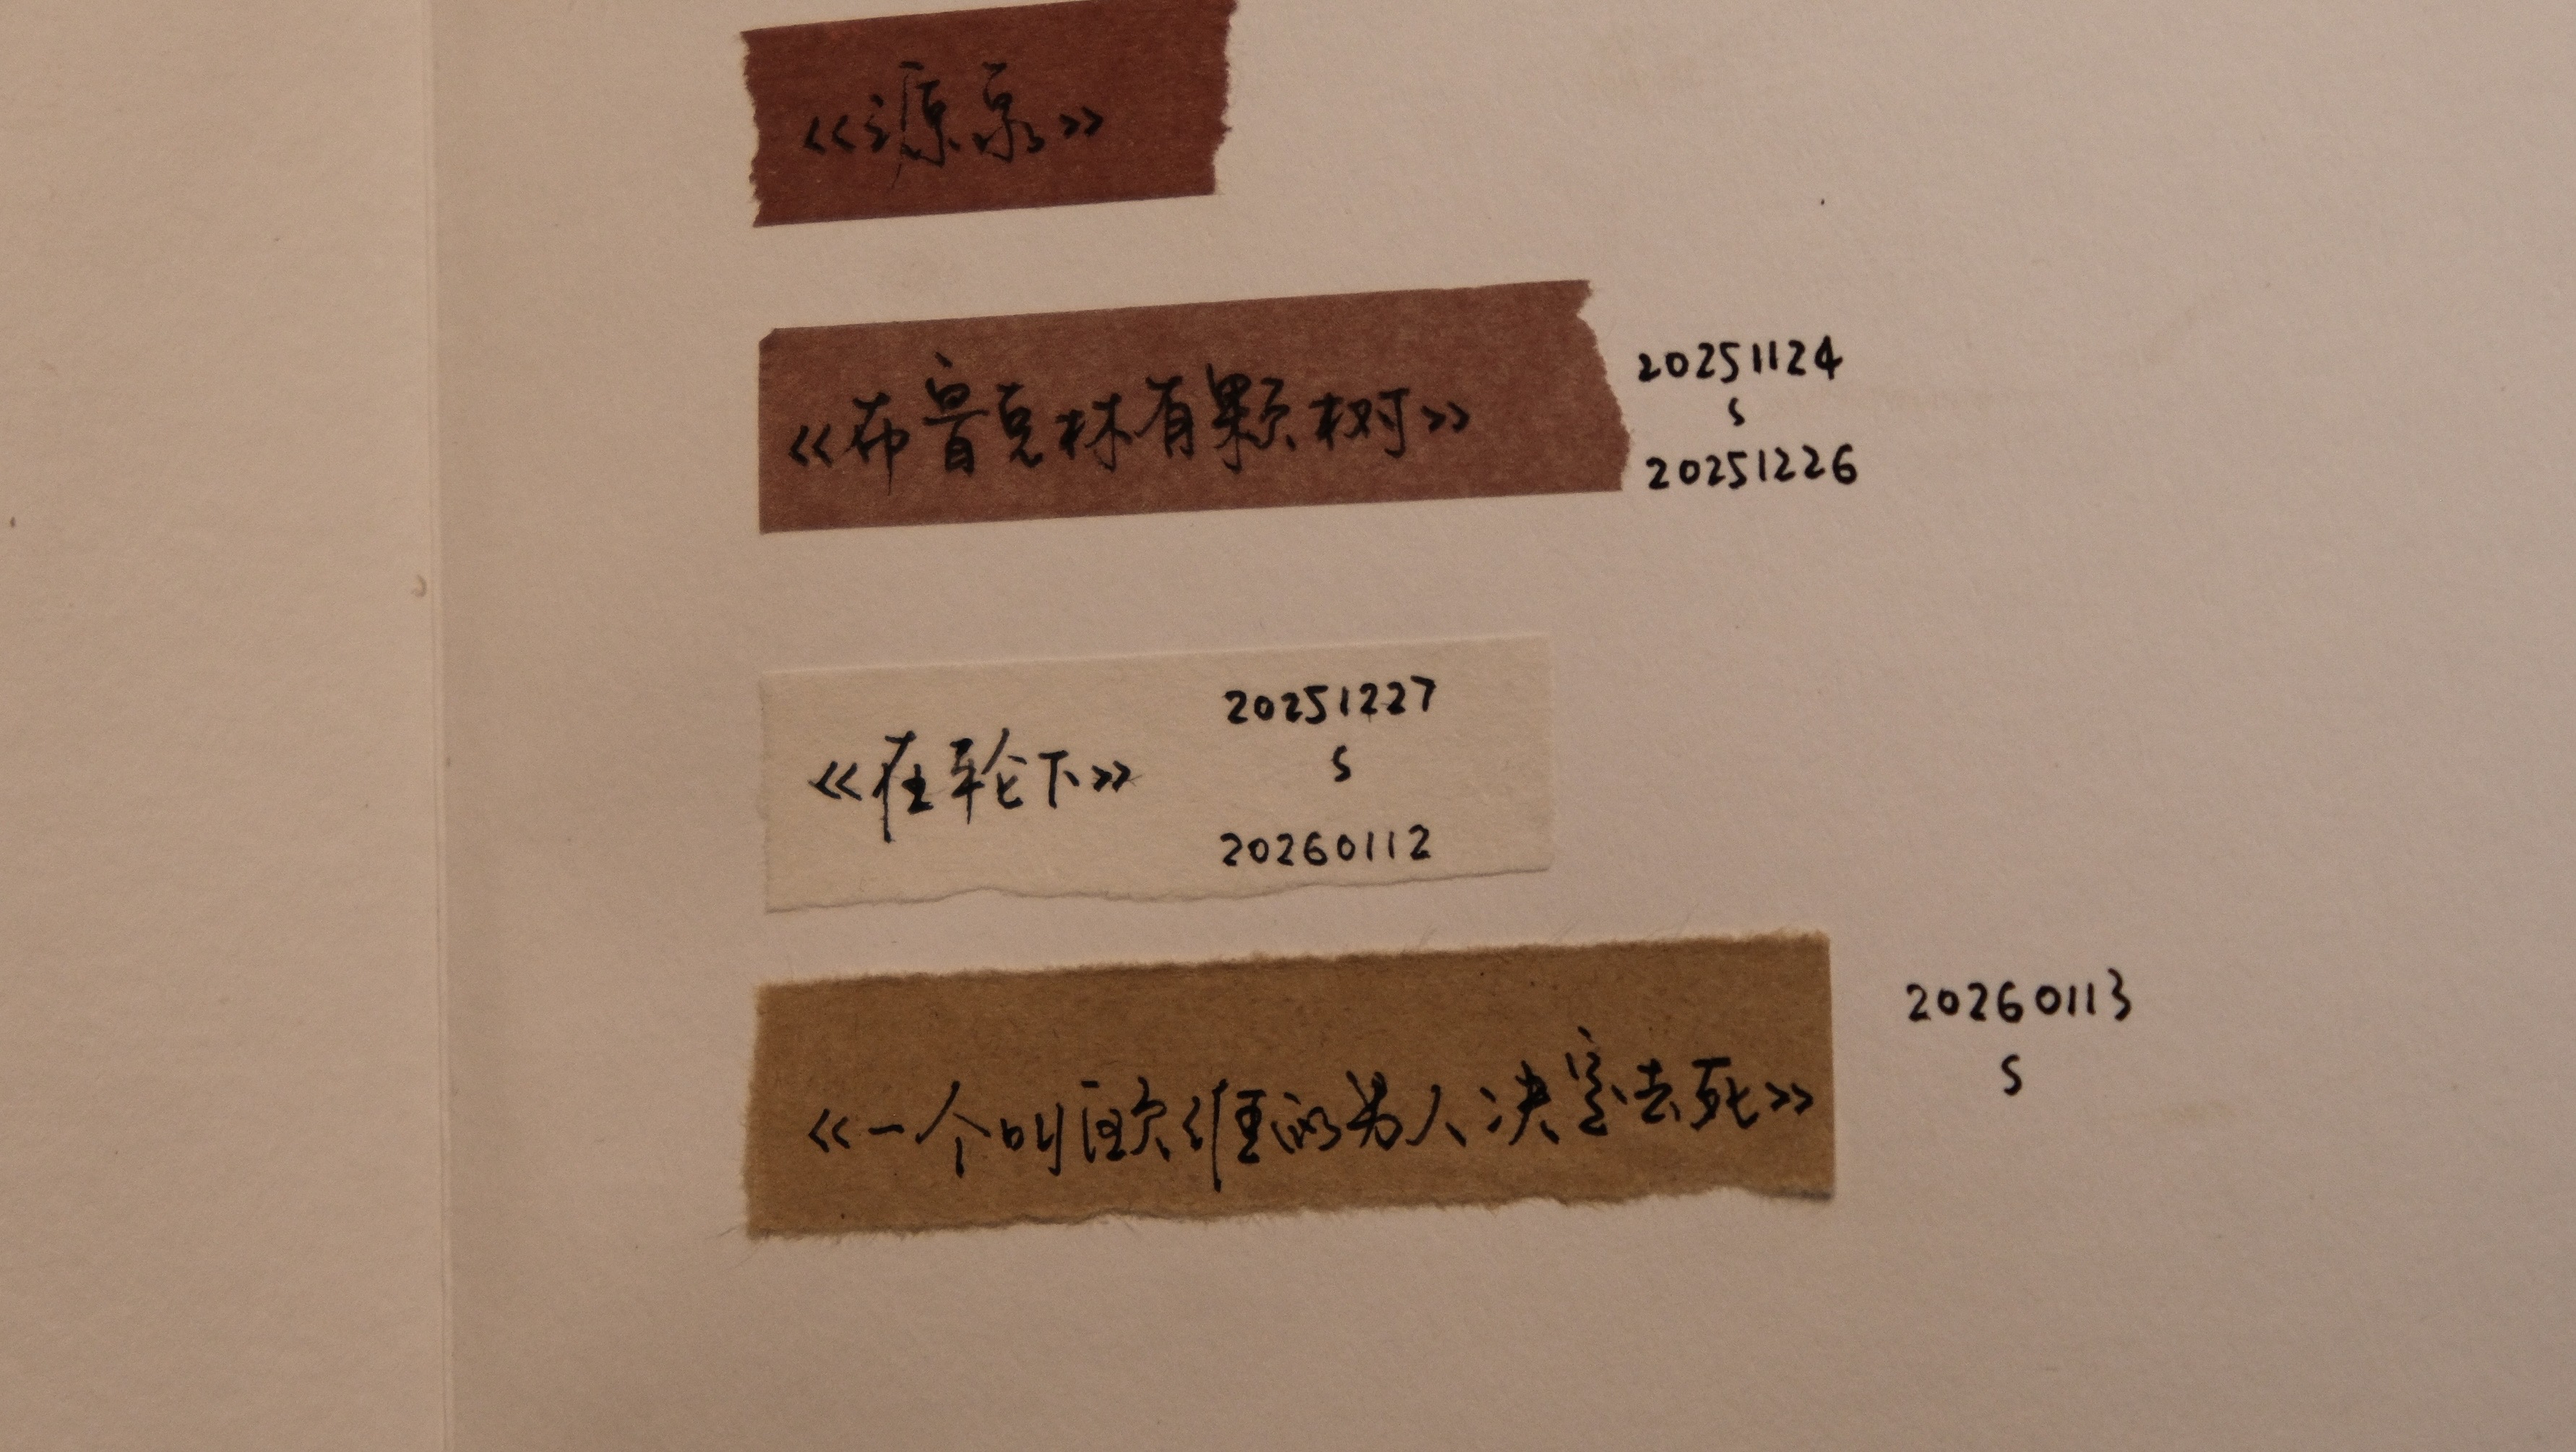 《源泉》
《布鲁克林有颗树》
20251124
~
20251226
《在轮下》
20251227
~
20260112
《一个叫欧维的男人决定去死》
20260113
~